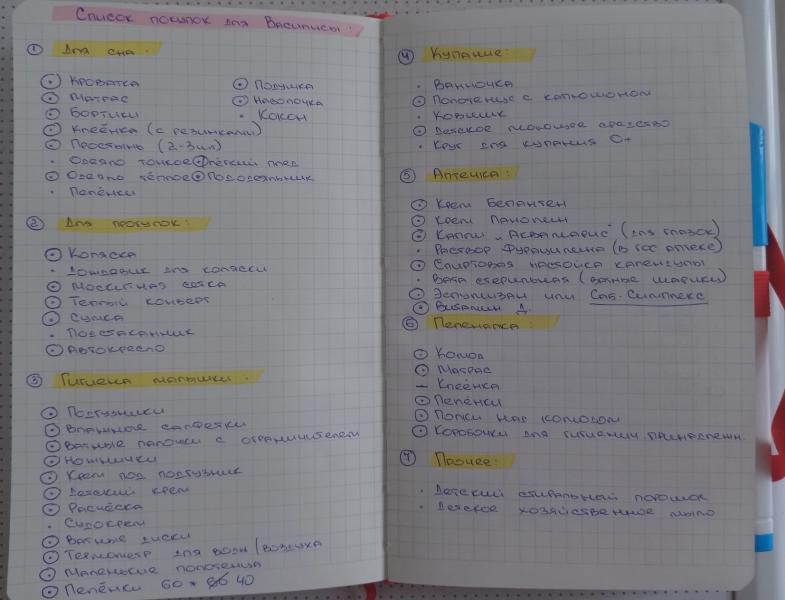 Список покупок для Василисы:
① Для сна.
Кроватка
Матрас
Бортики
Клеёнка (с резинками)
Простынь (2-3шт)
Одеяло тонкое лёгкий плед
Одеяло тёплое Пододеяльник
Пелёнки
Подушка
Наволочка
Кокон
② Для прогулок:
Коляска
Дождевик для коляски
Москитная сетка
Теплый конверт
Сумка
Подстаканник
Автокресло
③ Гигиена малышки.
Подгузники
Влажные салфетки
Ватные палочки с ограничителем
Ножнички
Крем под подгузник
Детский крем
Расчёска
Судокрем
Ватные диски
Термометр для воды/воздуха
Маленькие полотенца
Пелёнки 60 * 40
④ Купание:
Ванночка
Полотенце с капюшоном
Ковшик
Детское моющее средство
Круг для купания 0+
⑤ Аптечка:
Крем Бепантен
Крем Панолин
Капли „Аквамарис" (для глазок)
Раствор Фурацилина (в гос аптеке)
Спиртовая настойка календулы
Вата стерильная (ватные шарики)
Эспумизан или Саб-Симплекс
Витамин Д
⑥ Пеленалка:
Комод
Матрас
— Клеёнка
Пелёнки
Полки над комодом
Коробочки для гигиенич. принадлежн.
⑦ Прочее:
Детский стиральный порошок
Детское хозяйственное мыло